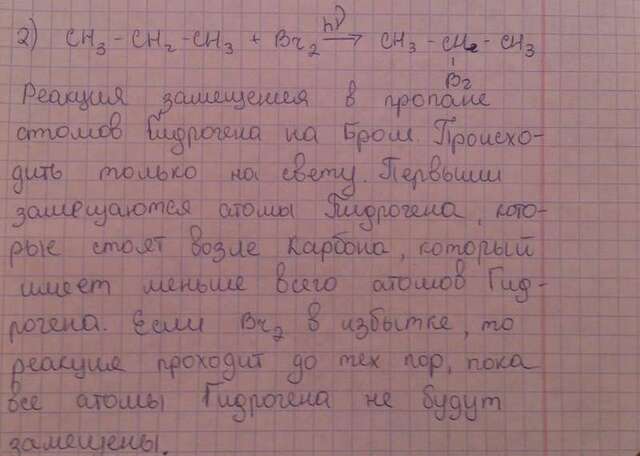 2) CH₃ - CH₂ - CH₃ + Br₂ hν⟶ CH₃ - CH₂ - CH₃
Br
Реакция замещения в пропане
атомов Гидрогена на Бром. Происхо-
дить только на свету. Первыми
замещаются атомы Гидрогена, кото-
рые стоят возле Карбона, который
имеет меньше всего атомов Гид-
рогена. Если Br₂ в избытке, то
реакция проходит до тех пор, пока
все атомы Гидрогена не будут
замещены.